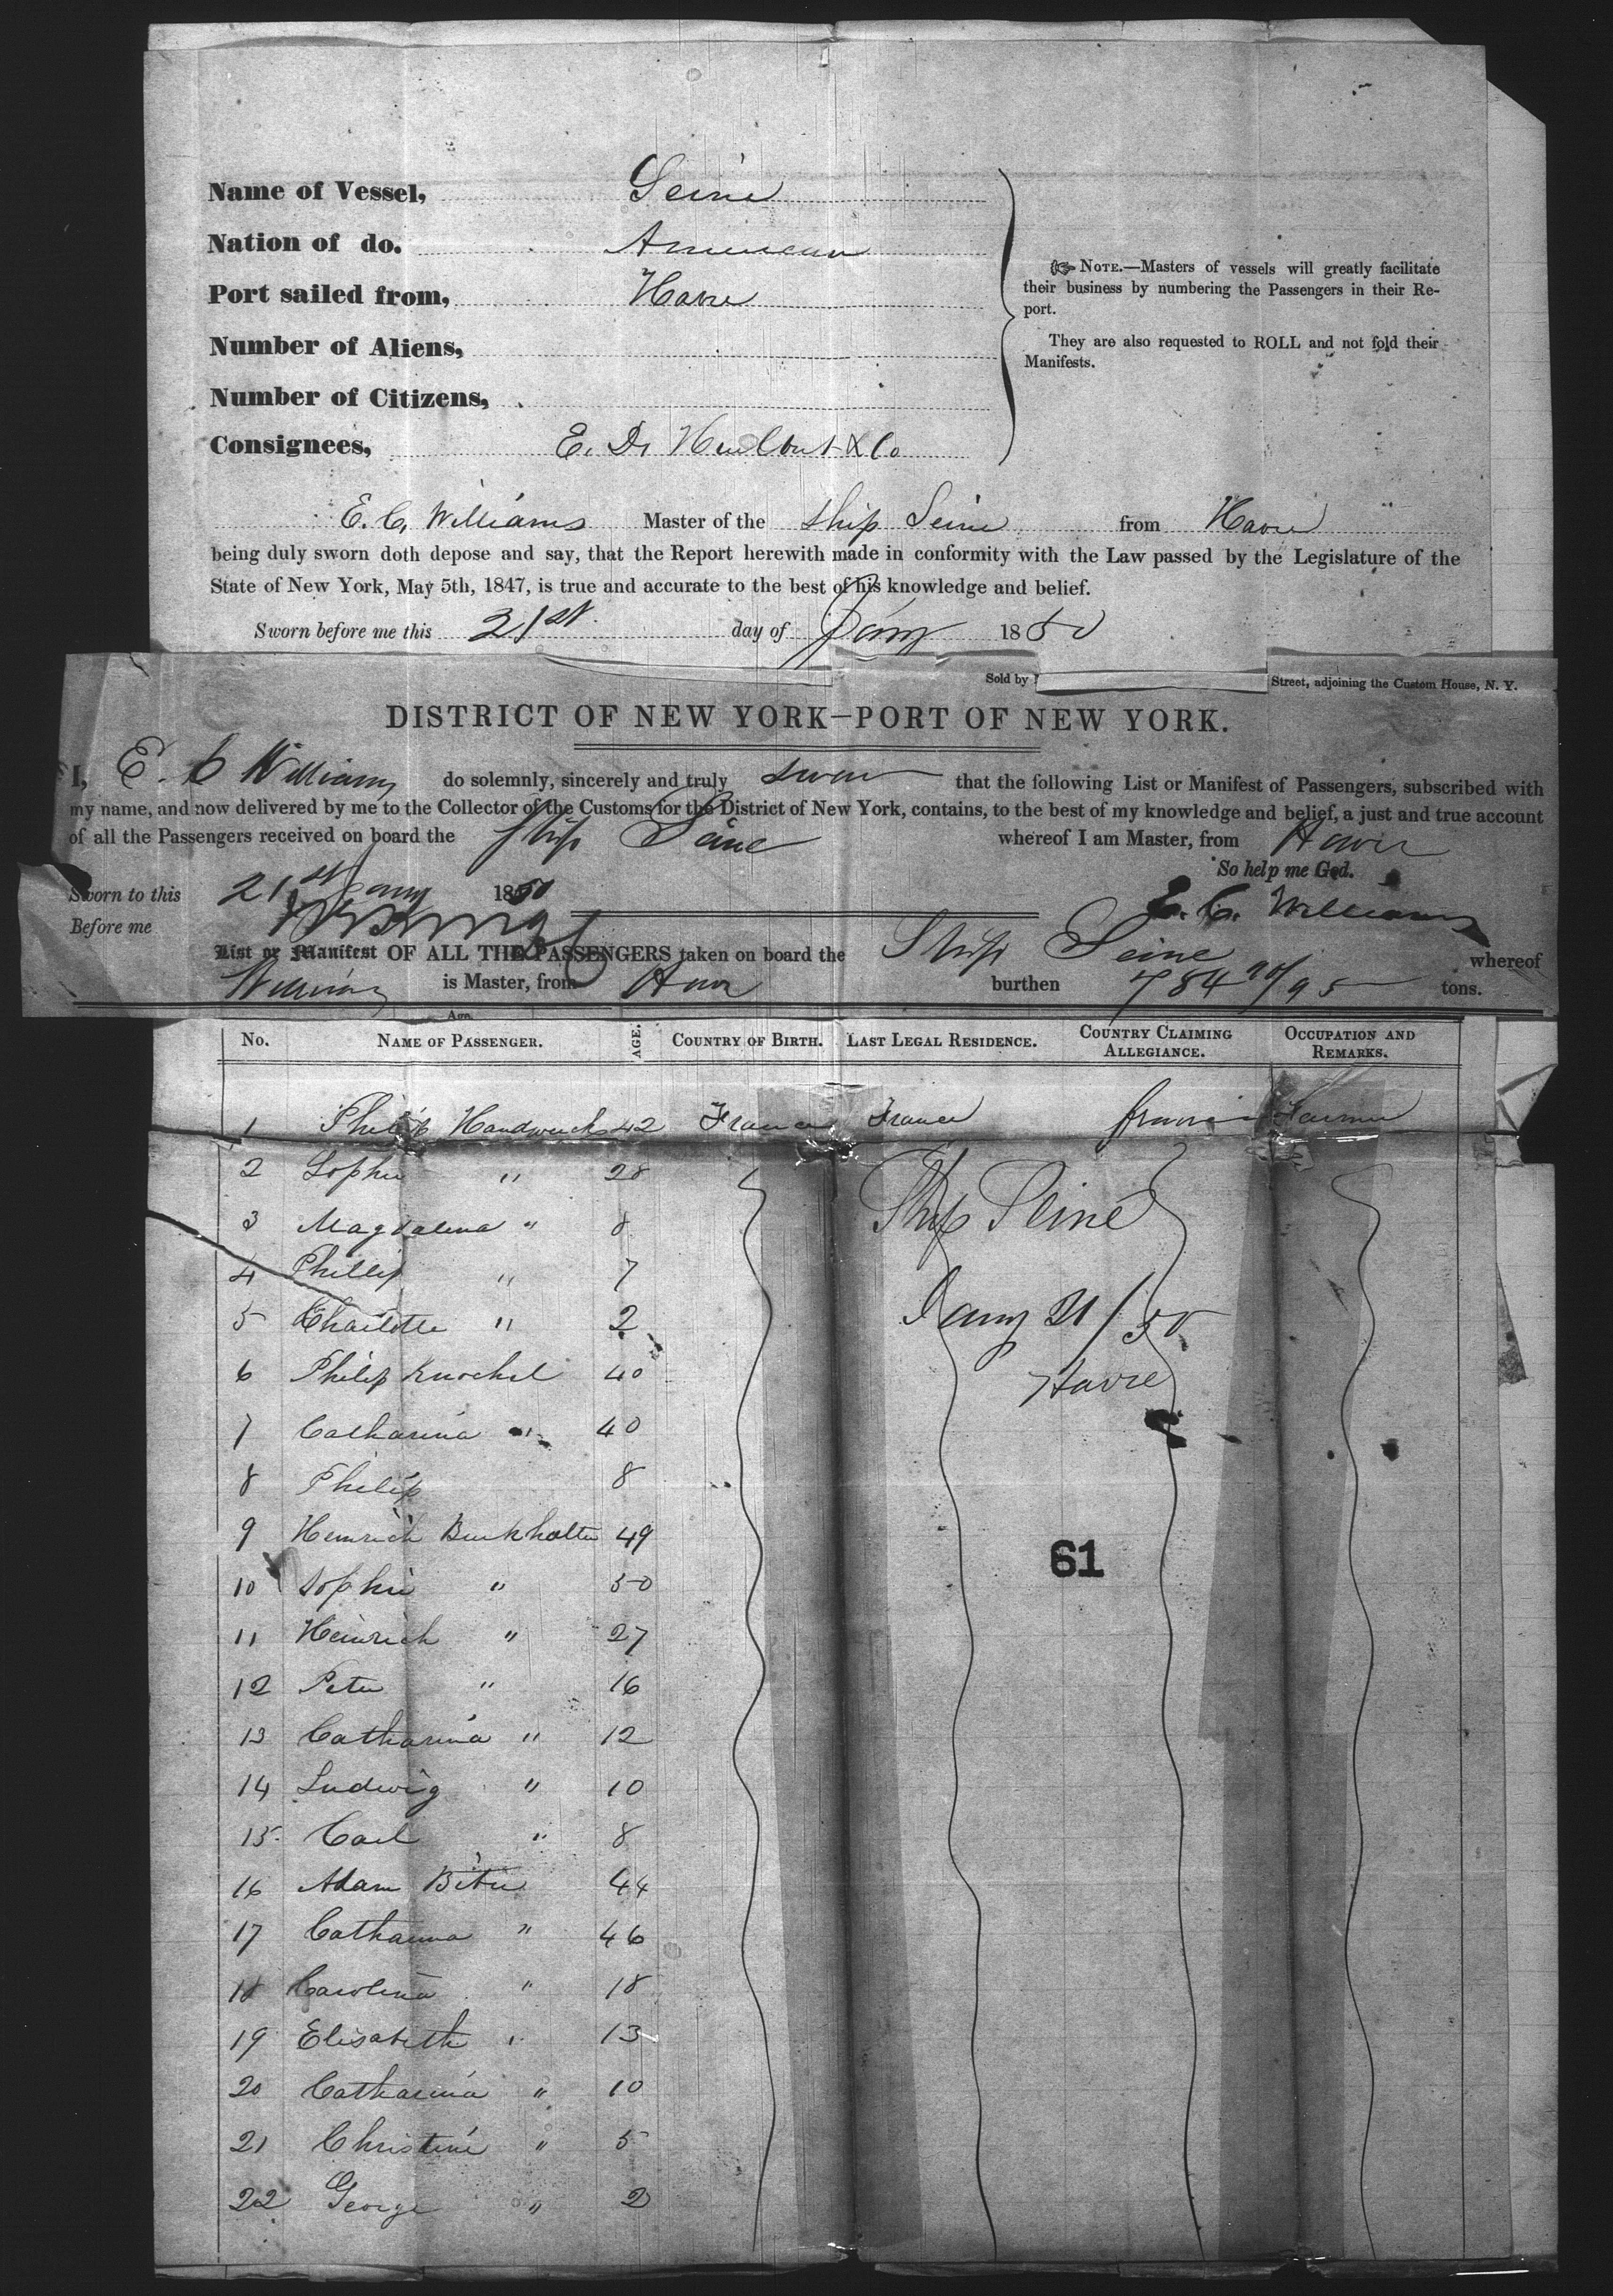 Name of Vessel, Seine
Nation of do. American
Port sailed from, Havre
Number of Aliens,
Number of Citizens,
Consignees, E. D. Hurlbut & Co
NOTE.—Masters of vessels will greatly facilitate
their business by numbering the Passengers in their Re-
port.
They are also requested to ROLL and not fold their
Manifests.
E. C. Williams Master of the Ship Seine from Havre
being duly sworn doth depose and say, that the Report herewith made in conformity with the Law passed by the Legislature of the
State of New York, May 5th, 1847, is true and accurate to the best of his knowledge and belief.
Sworn before me this 21st day of Jany 1850
Sold by
Street, adjoining the Custom House, N. Y.
DISTRICT OF NEW YORK—PORT OF NEW YORK.
I, E. C Williams do solemnly, sincerely and truly swear that the following List or Manifest of Passengers, subscribed with
my name, and now delivered by me to the Collector of the Customs for the District of New York, contains, to the best of my knowledge and belief, a just and true account
of all the Passengers received on board the Ship Seine whereof I am Master, from Havre
So help me God.
Sworn to this 21st Jany 1850
E. C. Williams
Before me
List or Manifest OF ALL THE PASSENGERS taken on board the Ship Seine whereof
Williams is Master, from Havre burthen 784 /95 tons.
No. NAME OF PASSENGER. AGE. COUNTRY OF BIRTH. LAST LEGAL RESIDENCE. COUNTRY CLAIMING ALLEGIANCE. OCCUPATION AND REMARKS.
1 Philip Handwerck 42 France France France Farmer
2 Sophie " 28
3 Magdalena " 8
4 Phillip " 7
5 Charlotte " 2
6 Philip Knochel 40
7 Catharina " 40
8 Philip 8
9 Heinrich Burkhalter 49
10 Sophie " 50
11 Heinrich " 27
12 Peter " 16
13 Catharina " 12
14 Ludwig " 10
15 Carl " 8
16 Adam Biter 44
17 Catharina " 46
18 Carolina " 18
19 Elisabeth " 13
20 Catharina " 10
21 Christine " 5
22 George " 2
Ship Seine
Jany 21/50
Havre
61